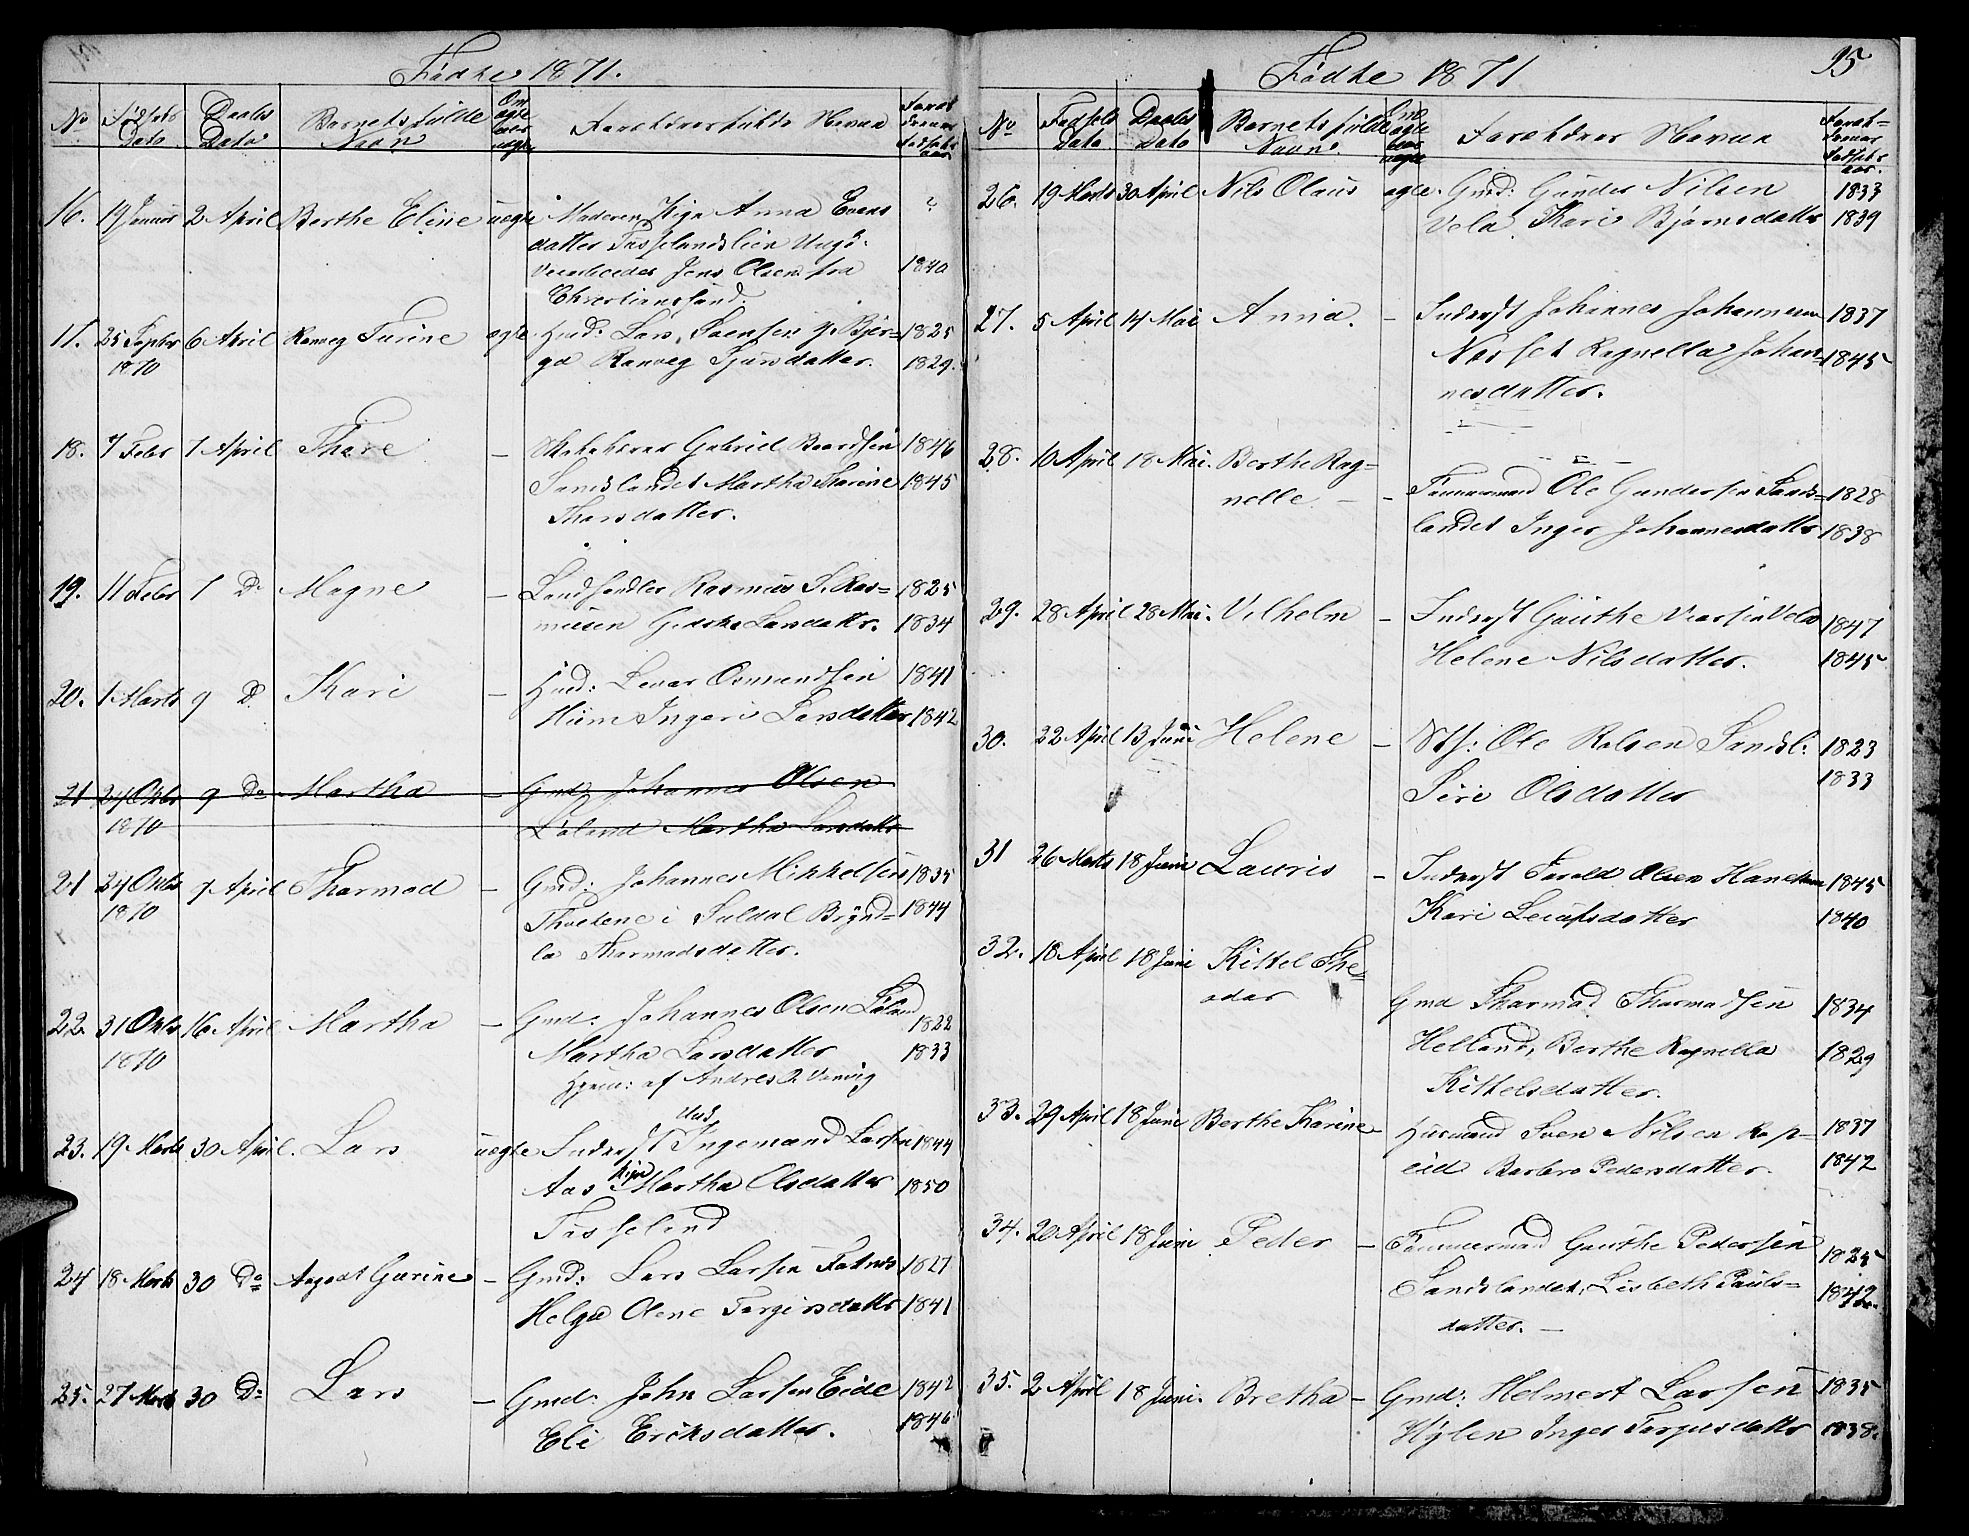 Fødte 1871.
No Fødsels Dato Daabs Dato Barnets fulde Navn Om ægte eller uægte Forældrenes fulde Navne Forældrenes Fødselsaar
16. 19 Januar 2 April Berthe Eline uægte Moderen Pige Anna Evens ?
datter Tasselandslien Ungk.
Jens Olsen fra 1840
Christianssand.
17. 25 Septbr 6 April Ranveg Turine ægte Husd: Lars Svensen p. Bjer- 1825
1870 gd Ranveg Sjursdatter. 1829.
18. 7 Febr 7 April Thore – Gabriel Baardsen 1846
Sandslandet Martha Karine 1845
Thorsdatter.
19. 11 Febr 7 Do Magne – Landhandler Rasmus S. Ras= 1825
musen Gjertha Larsdattr. 1834
20. 1 Marts 9 D. Kari – Husd: Osmundsen 1841
Hiim Ingeri Larsdatter 1842
21 24 Oktbr 9 Do Martha – Gmd: Johannes Olsen
1870 Løland Martha Larsdattr
21 24 Oktbr 9 April Thormod – Gmd: Johannes Mikkelsen 1835
1870 i Suldal Brynd= 1844
la Thormodsdatter.
22. 31 Oktbr 16 April Martha – Gmd. Johannes Olsen Løland
1822
1870 Martha Larsdatter 1833
Hjem: af Andres
23. 19 Marts 30 April. Lars uægte Inderst Ingemand Larsen 1844
Aas Pige Martha Olsdatter 1850
Tasseland
24 18 Marts 30 Do Aagodt Gurine – Gmd: Lars Larsen Fatnes 1827
Helga Olene Torgersdattr 1841
25. 27 Marts 30 Do Lars – Gmd. John Larsen Eide 1842
Eli Eriksdatter. 1846
Fødte 1871
95
No Fødsels Dato Daabs Dato Barnets fulde Navn. Om ægte eller uægte Forældres Navne Forældrenes Fødselsaar.
26. 19 Marts 30 April Nils Olaus ægte. Gmd: Gunder Nilsen 1833
Vela. Kari Bjørnsdattr 1839
27. 5 April 14 Mai Anna. – Inderst Johannes Johannesen 1837
Ragnella Johan= 1845
nesdatter.
28. 10 April 18 Mai. Berthe Rag=
nelle. – – Tømmermand Ole Gundersen Sands= 1828
landet Inger Johannesdattr 1838
29. 28 April 28 Mai. Vilhelm – Inderst Gauthe Vela 1847
Helene Nilsdatter. 1845
30. 22 April 13 Juni Helene – Ole Rolsen Sandsl: 1823
Siri Olsdatter 1833
31 26 Marts 18 Juni Lauris – Inderst Olsen 1845
Kari Leiufsdatter 1840
32. 18 April 18 Juni Kittel The=
odor Gmd Thormod Thormodsen 1834
Helland, Berthe Ragnella 1829
Kittelsdatter.
33. 29 April 18 Juni Berthe Karine – Husmand Sven Nilsen Rap= 1837
eid Barbro Pedersdatter. 1842
34. 20 April 18 Juni Peder – Tømmermand Gauthe Pedersen 1825
Sandslandet, Lisbeth Pauls= 1842.
datter. –
35. 2 April 18 Juni. Bretha – Gmd: Helmert Larsen 1835
Hylen Inger Torgersdattr 1838.